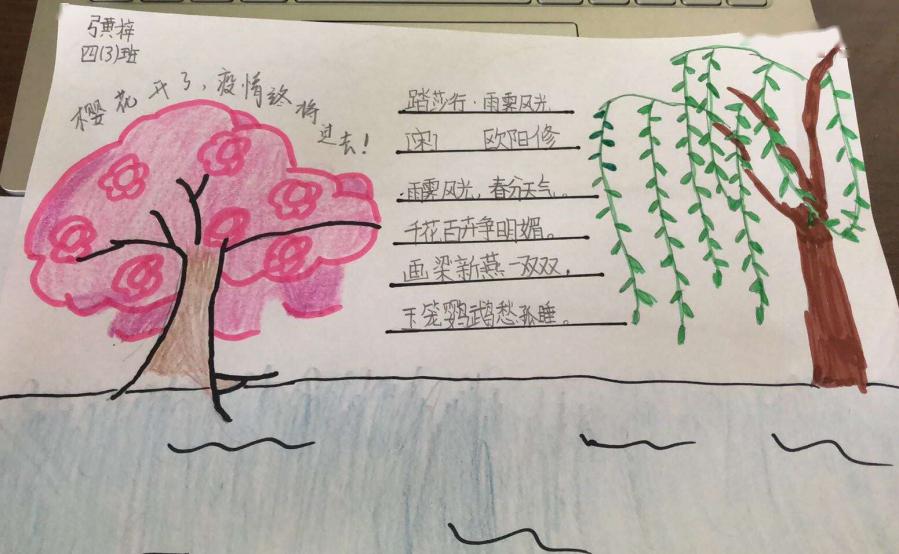 四(3)班
樱花开了,疫情终将
过去!
踏莎行·雨霁风光
[宋] 欧阳修
雨霁风光,春分天气。
千花百卉争明媚。
画梁新燕一双双,
玉笼鹦鹉愁孤睡。